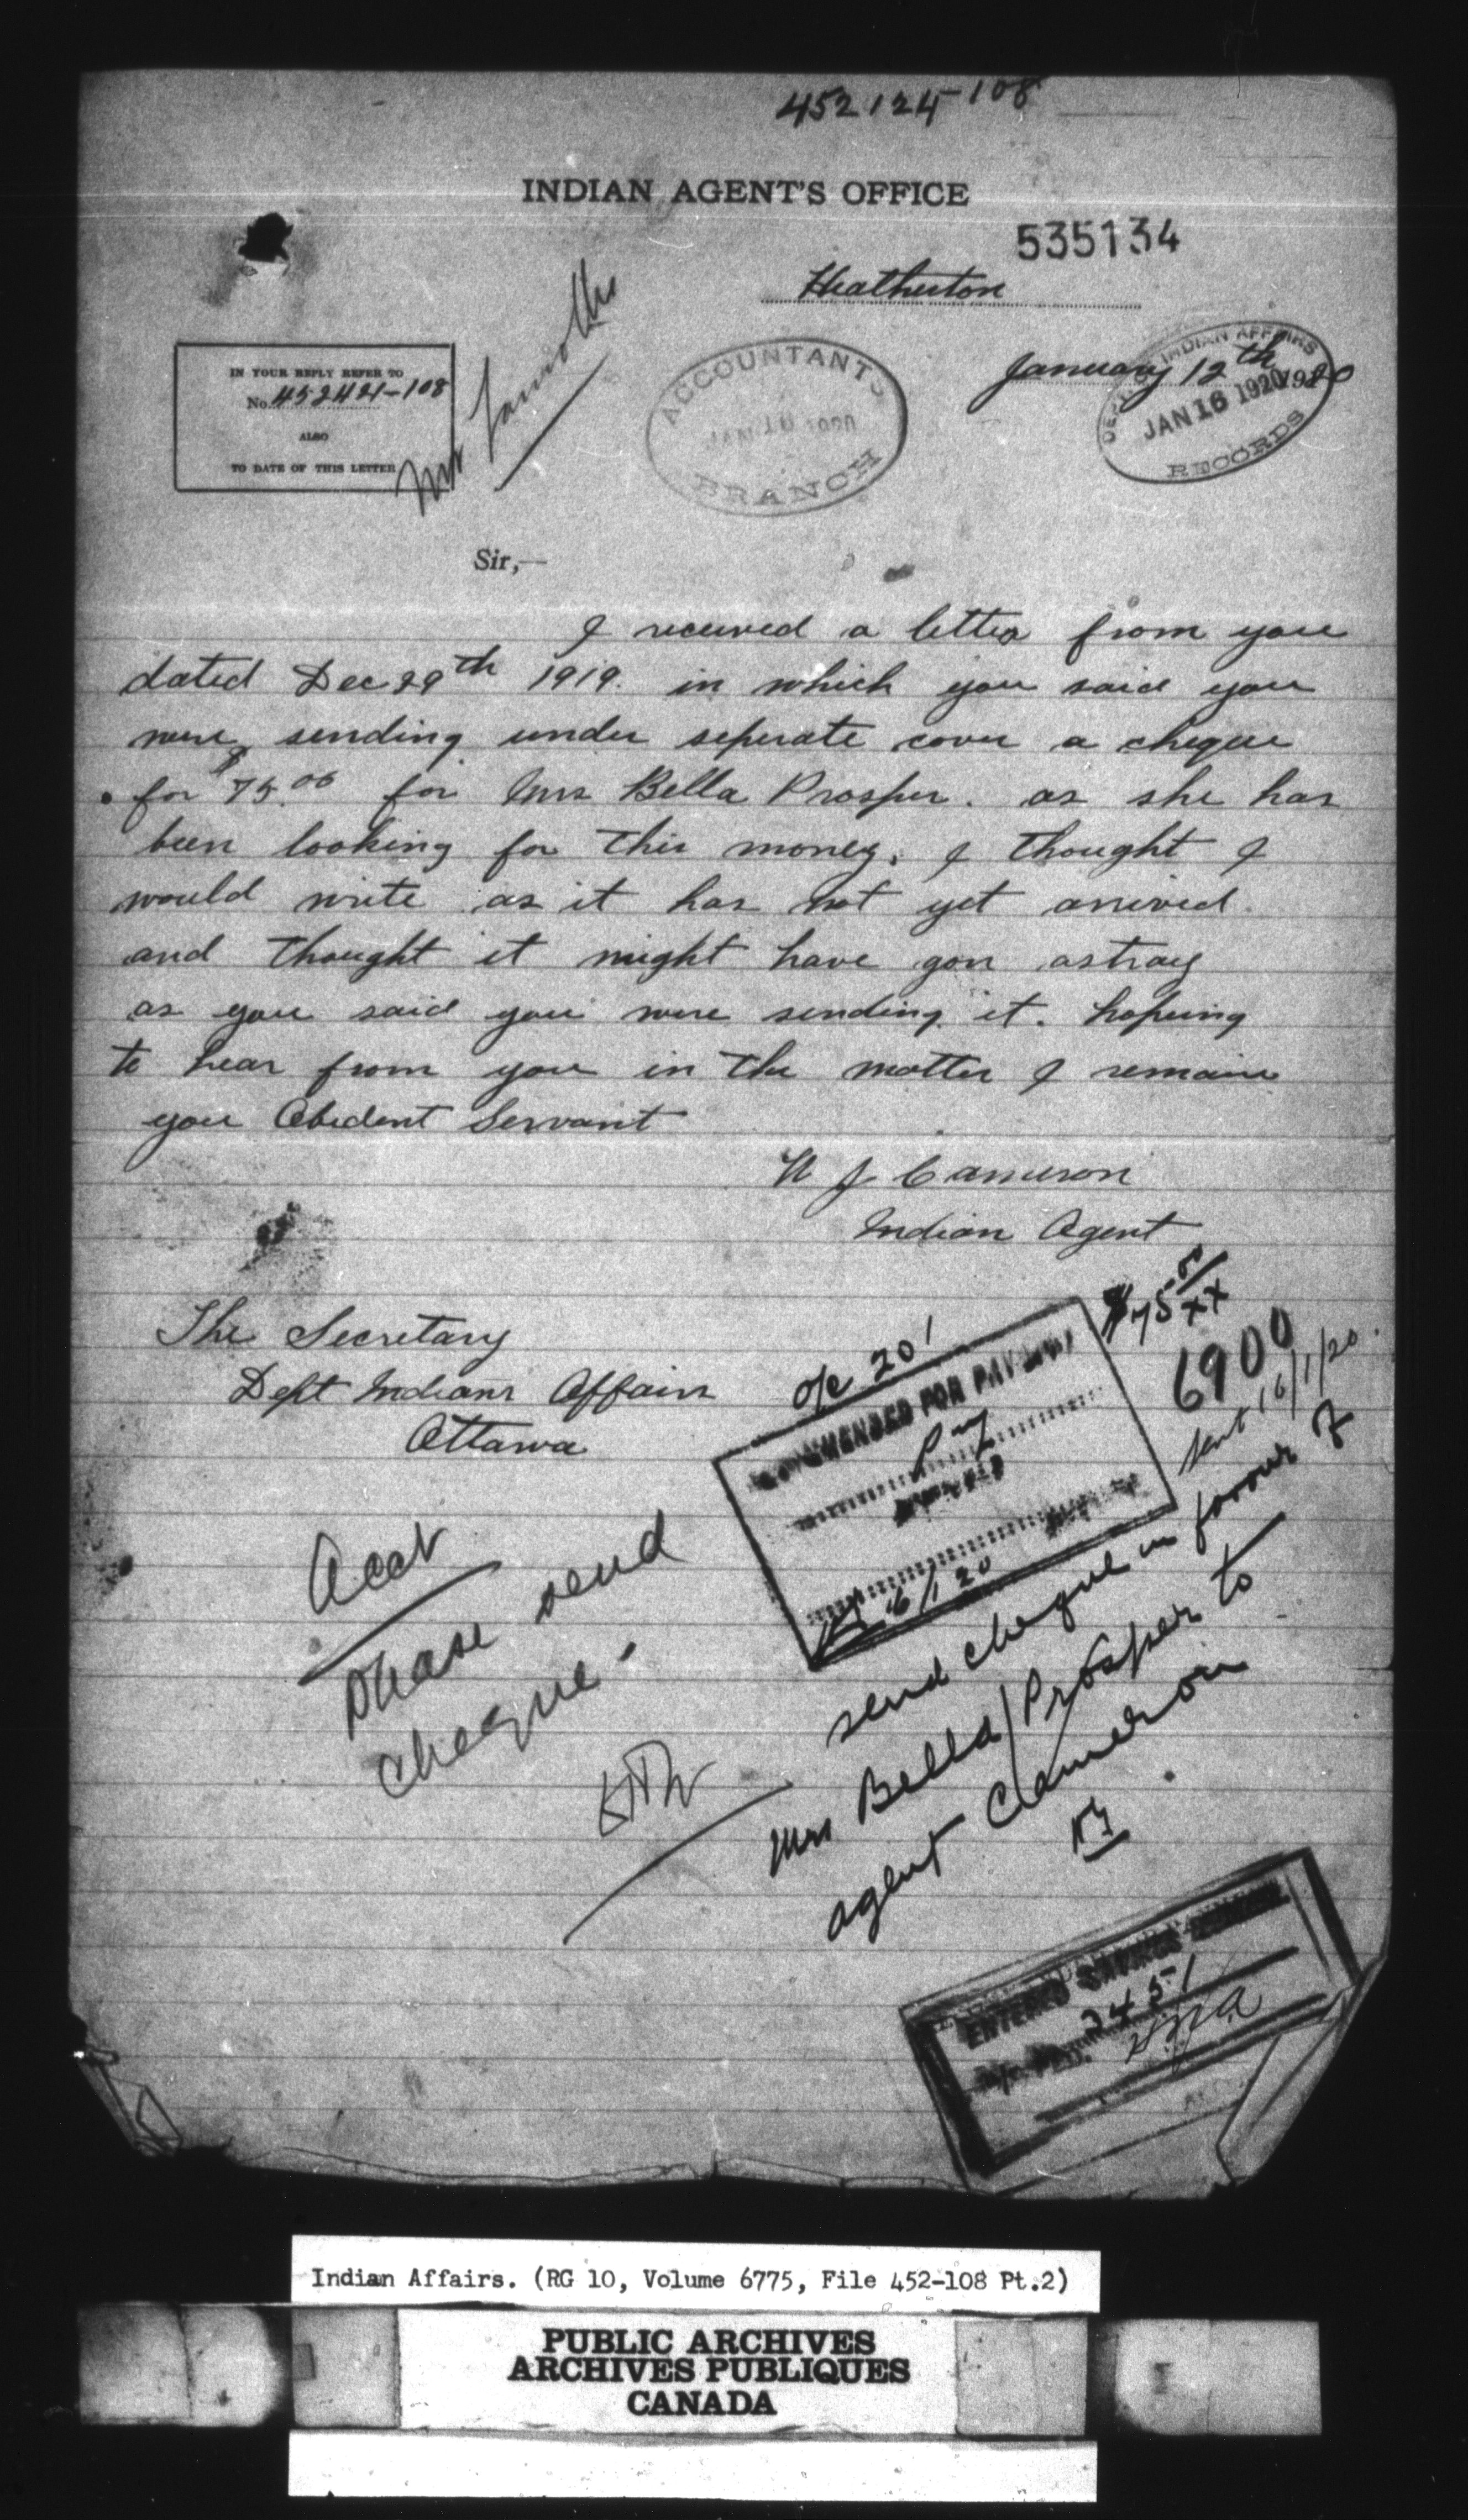 452124-108
INDIAN AGENT'S OFFICE
535134
Heatherton
IN YOUR REPLY REFER TO
No. 452424-108
ALSO
TO DATE OF THIS LETTER
Mr
ACCOUNTANT'S
BRANCH
January 12th 1920
INDIAN AFFAIRS
JAN 16 1920
RECORDS
Sir,—
I received a letter from you
dated Dec 29th 1919. in which you said you
were sending under seperate cover a cheque
for $75.00 for Mrs Bella Prosper. as she has
been looking for this money, I thought I
would write as it has not yet arrived
and thought it might have gon astray
as you said you were sending it. hopeing
to hear from you in the matter I remain
you Obedent Servant
J Cameron
Indian Agent
The Secretary
Dept Indians Affairs
Ottawa
o/c 201
$75 00/xx
6900
sent 16/1/20.
RECOMMENDED FOR PAYMENT
16/1 20
Acct
Please send
cheque -
send cheque in favour of
Mrs Bella Prosper to
agent Cameron
ENTERED SAVINGS
3451
Indian Affairs. (RG 10, Volume 6775, File 452-108 Pt.2)
PUBLIC ARCHIVES
ARCHIVES PUBLIQUES
CANADA